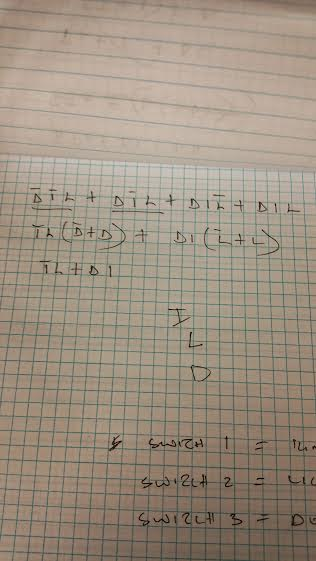 D̄ĪL + DĪL + DIL̄ + DIL
ĪL(D̄+D) + DI(L̄+L)
ĪL+DI
I
L
D
SWITCH 1 =
SWITCH 2 =
SWITCH 3 =